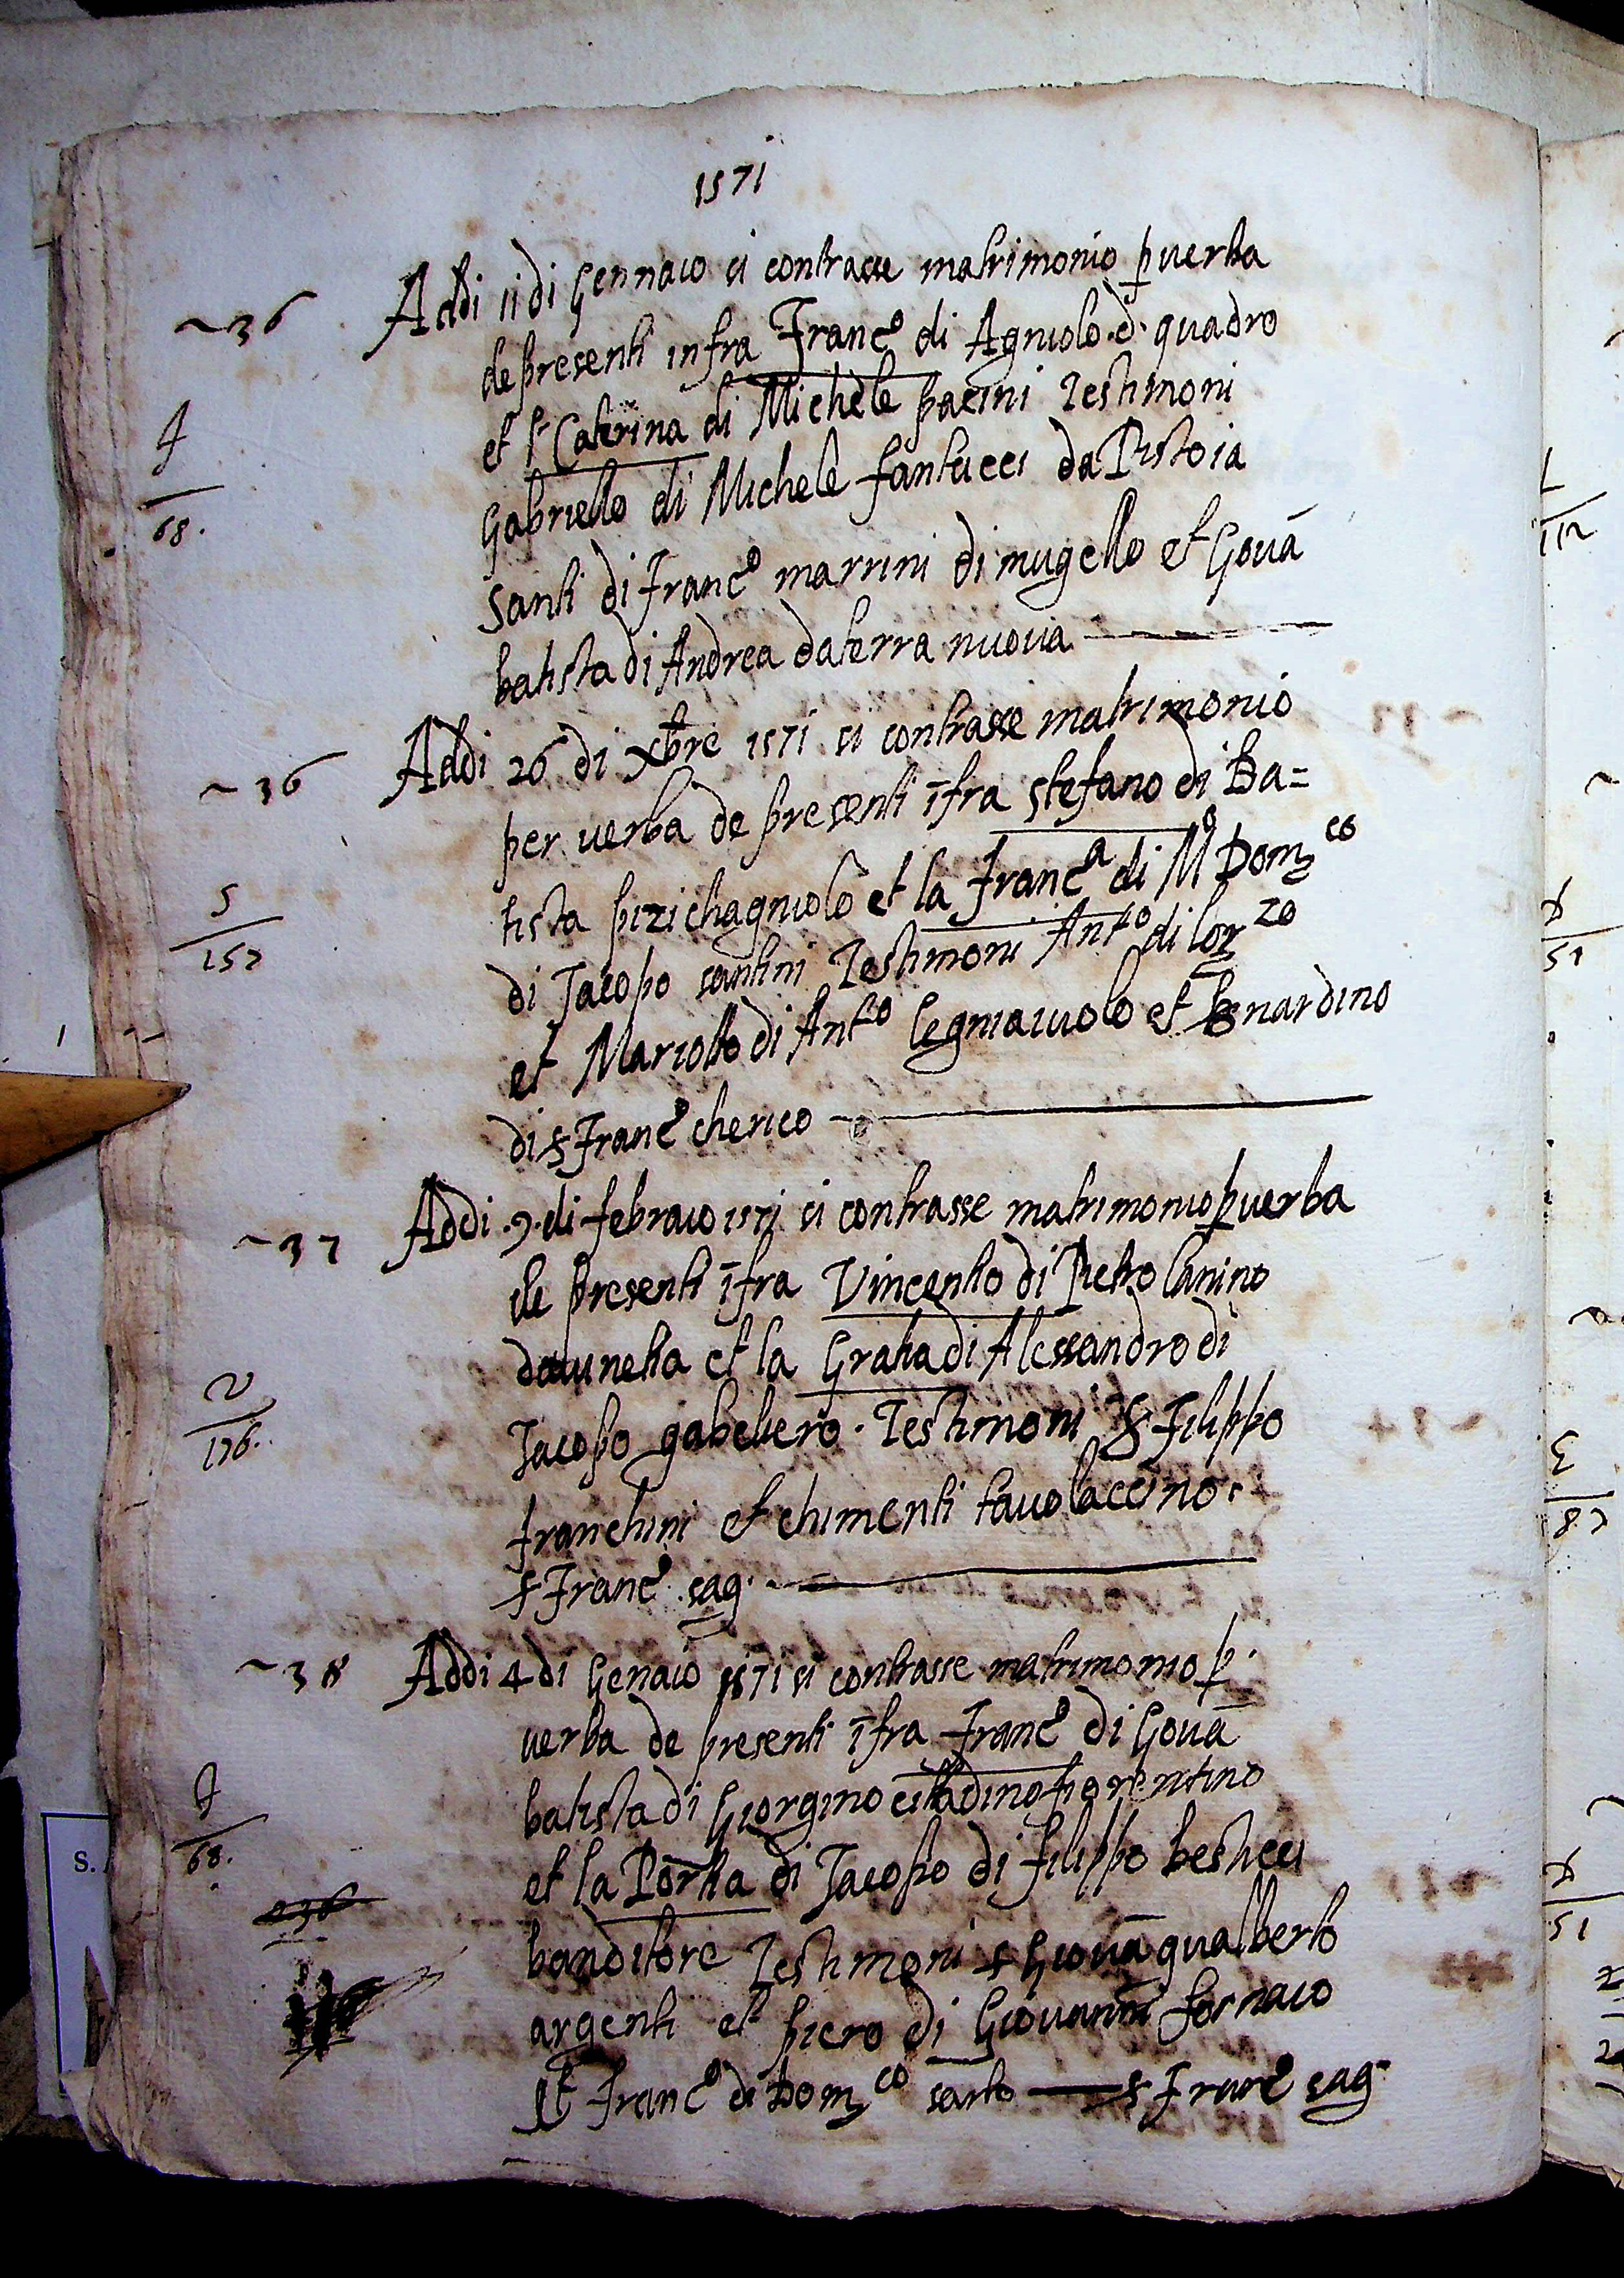 1571
~36 Addi 11 di Gennaio si contrasse matrimonio p verba
de presenti infra Franc.º di Agniolo d. quadro
et la Caterina di Michele pacini Testimoni
Gabriello di Michele fantucci da Pistoia
F
68.
Santi di Franc.º marrini di mugello et Giovā
batista di Andrea da terra nuova
~36 Addi 26 di xbre 1571 si contrasse matrimonio
per verba de presenti īfra stefano di Ba=
tista pizichagniolo et la Franc.ª di Mº Dom.co
5
157
di Jacopo santini Testimoni Ant.º di lor.zo
et Mariotto di Ant.º legniaiuolo et bernardino
di s Franc.º cherico
~37 Addi .9. di febraio 1571 si contrasse matrimonio p verba
de presenti īfra Vincentio di Pietro lanino
et la Gratia di Alessandro di
V
176.
Jacopo gabelliero . Testimoni S Filippo
franchini et chimenti tavolaccino.
s Franc.º sag.
~38 Addi 4 di Genaio 1571 si contrasse matrimonio p.
verba de presenti īfra Franc.º di Giovā
batista di Giorgino cittadino fiorentino
F
68.
et la Portia di Jacopo di filippo
banditore Testimoni s Giovā gualberto
argenti et piero di Giovanni fornaio
Et Franc.º di Dom.co sarto s Franc.º sag.